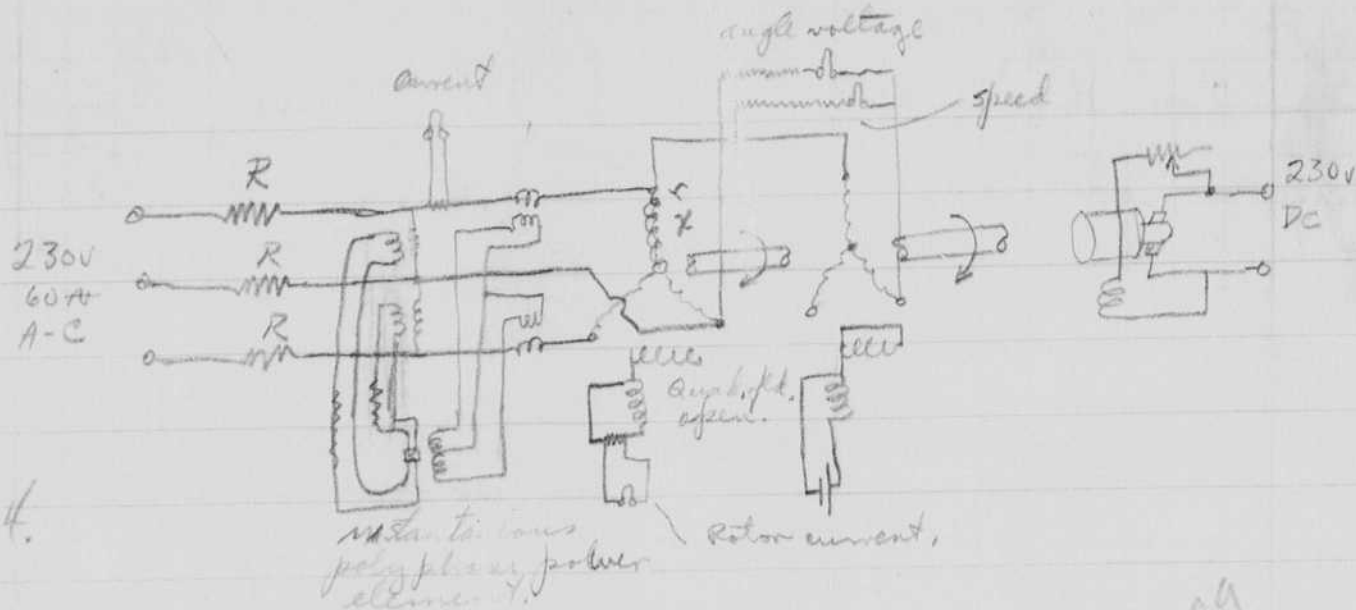 angle voltage
current
speed
R
r
x
230v
DC
230v
60~
A-C
R
R
Quad. fld.
open.
4.
instantaneous
polyphase power
element.
Rotor current.